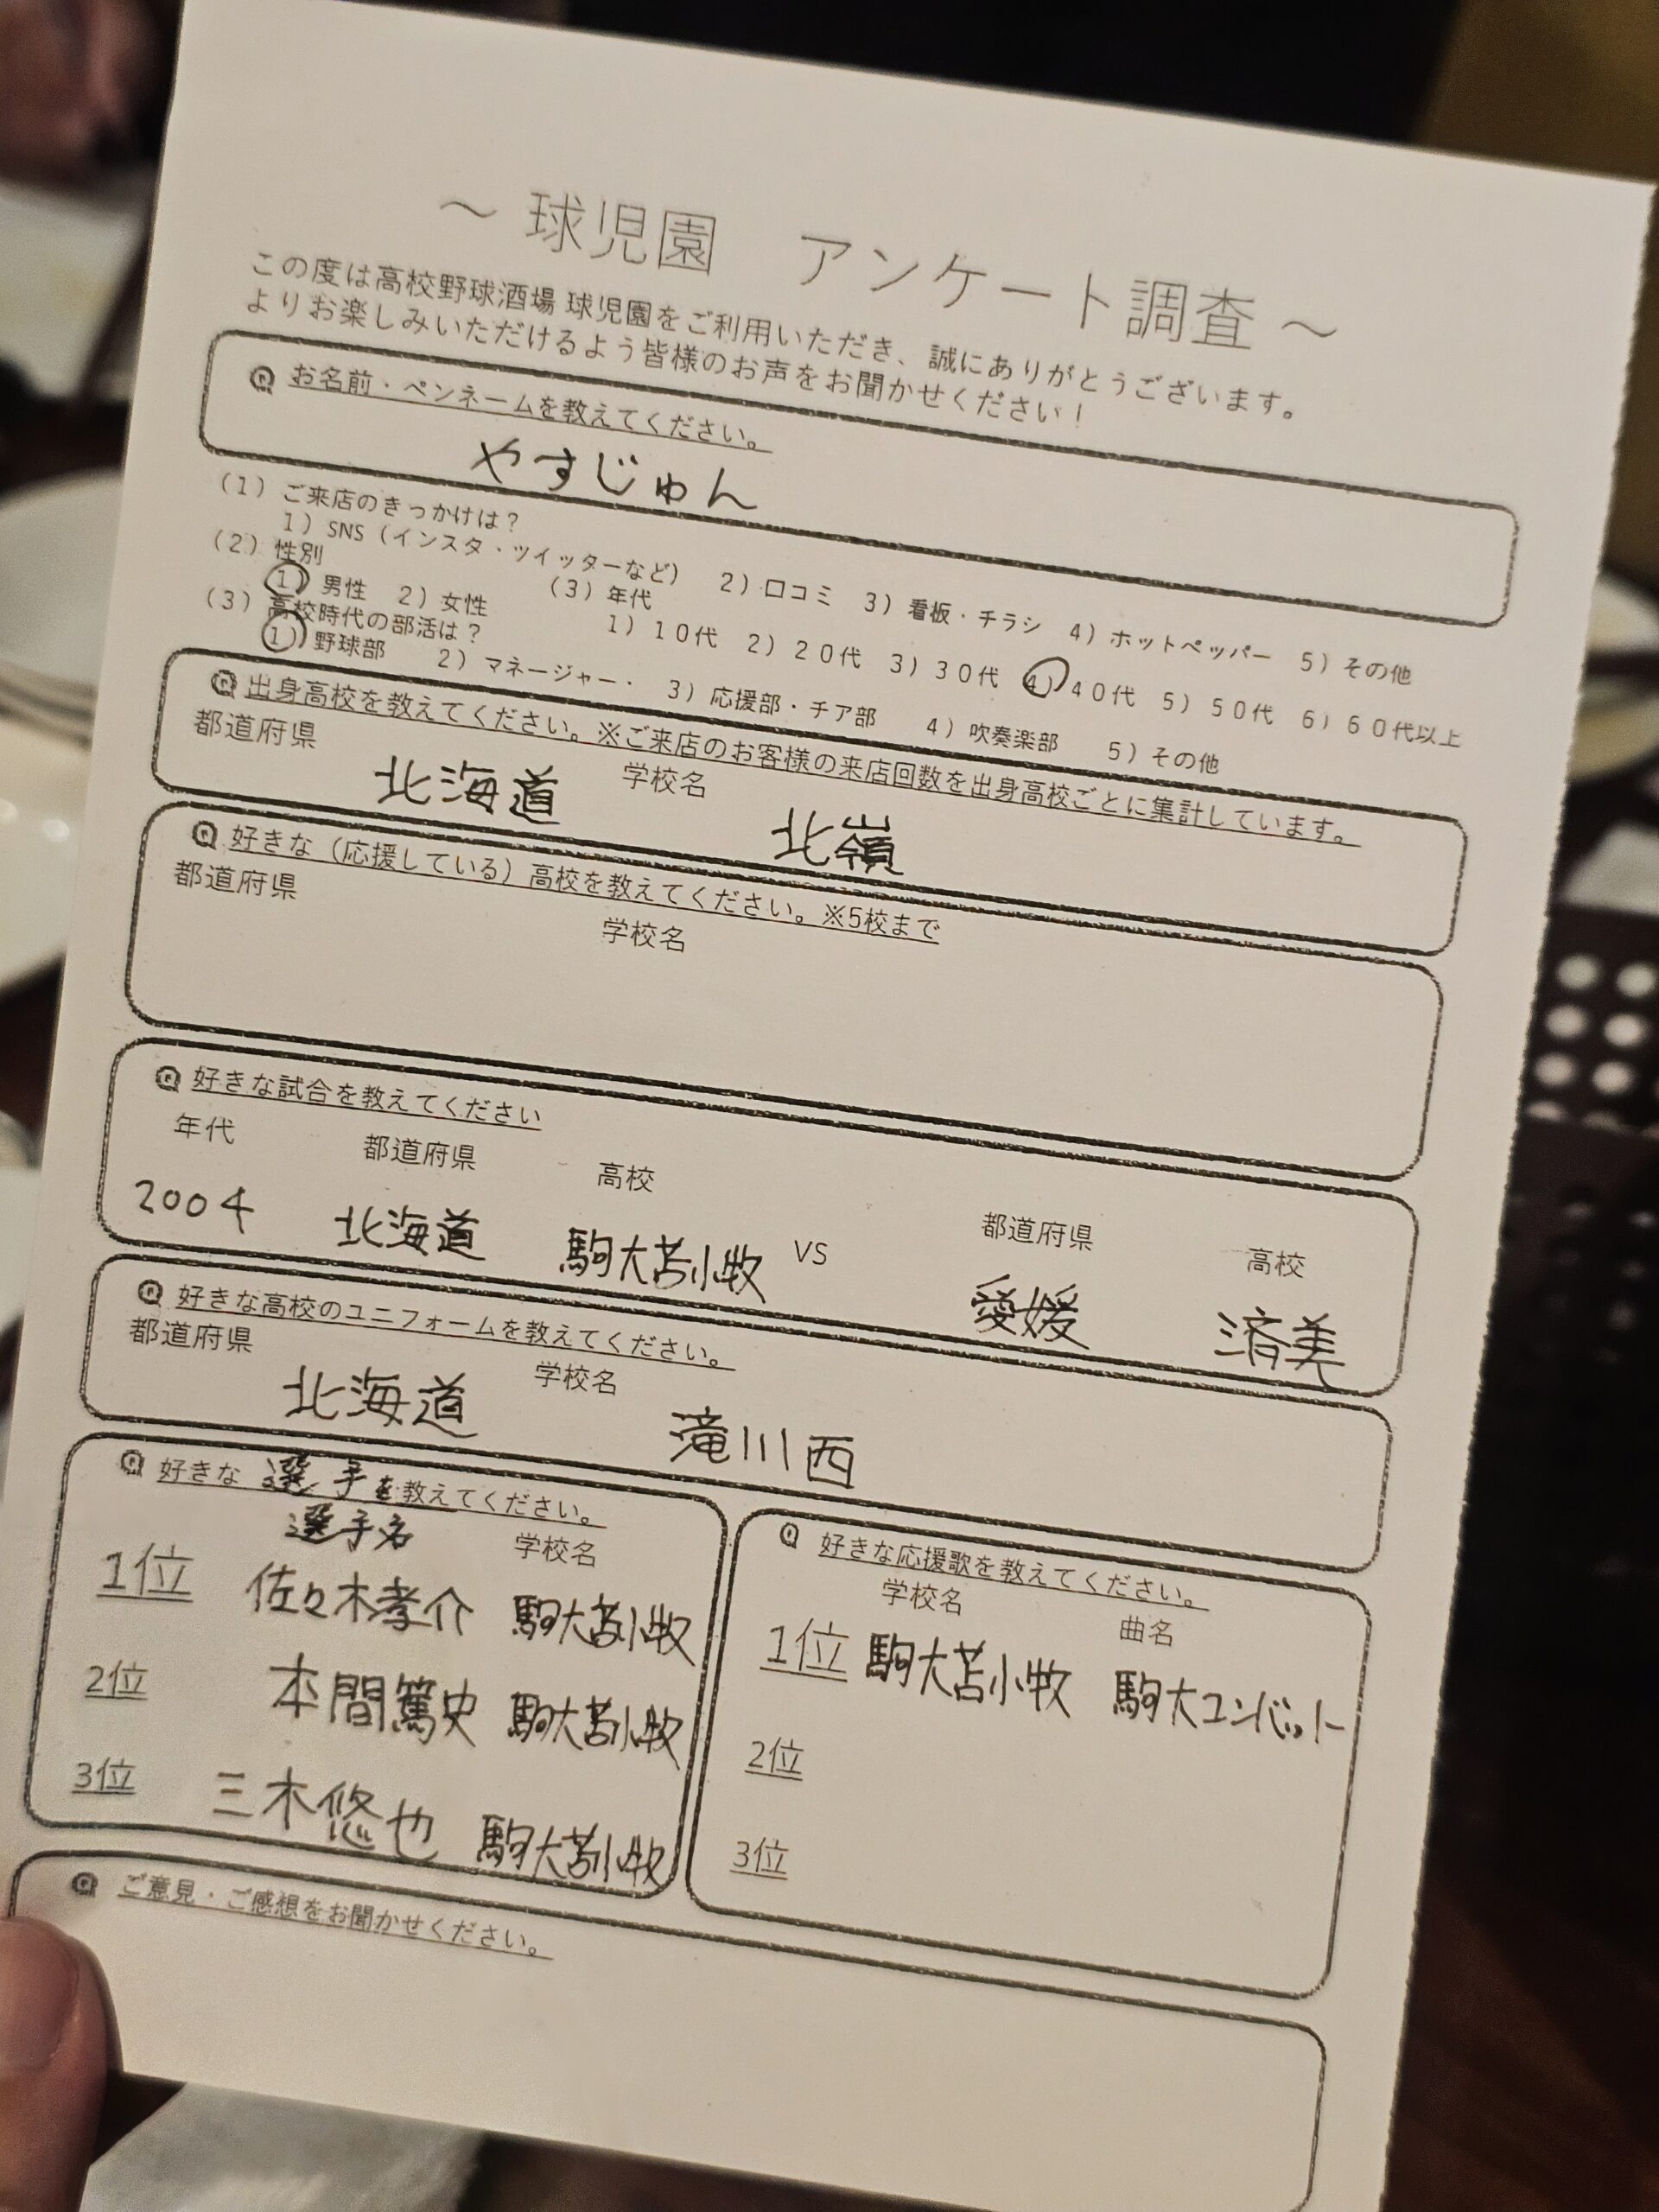 ～ 球児園　アンケート調査 ～
この度は高校野球酒場 球児園をご利用いただき、誠にありがとうございます。
よりお楽しみいただけるよう皆様のお声をお聞かせください！
Q お名前・ペンネームを教えてください。
やすじゅん
（1）ご来店のきっかけは？
1）SNS（インスタ・ツイッターなど）　2）口コミ　3）看板・チラシ　4）ホットペッパー　5）その他
（2）性別　（3）年代
1）男性　2）女性　1）10代　2）20代　3）30代　4）40代　5）50代　6）60代以上
（3）高校時代の部活は？
1）野球部　2）マネージャー・　3）応援部・チア部　4）吹奏楽部　5）その他
Q 出身高校を教えてください。※ご来店のお客様の来店回数を出身高校ごとに集計しています。
都道府県　北海道　学校名　北嶺
Q 好きな（応援している）高校を教えてください。※5校まで
都道府県　学校名
Q 好きな試合を教えてください
年代　都道府県　高校　都道府県　高校
2004　北海道　駒大苫小牧　VS　愛媛　済美
Q 好きな高校のユニフォームを教えてください。
都道府県　北海道　学校名　滝川西
Q 好きな 選手を教えてください。
選手名　学校名
1位　佐々木孝介　駒大苫小牧
2位　本間篤史　駒大苫小牧
3位　三木悠也　駒大苫小牧
Q 好きな応援歌を教えてください。
学校名　曲名
1位　駒大苫小牧　駒大コンバット
2位
3位
Q ご意見・ご感想をお聞かせください。